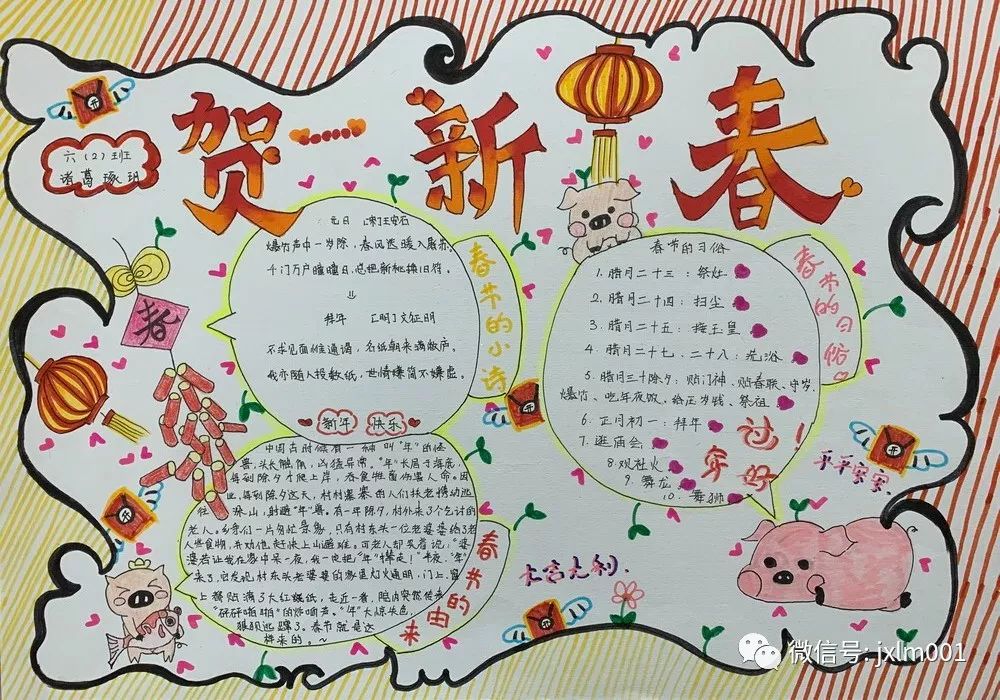 贺新春
六(2)班
诸葛琢玥
元日 [宋]王安石
爆竹声中一岁除,春风送暖入屠苏。
千门万户曈曈日,总把新桃换旧符。
拜年 [明]文征明
不求见面惟通谒,名纸朝来满敝庐。
我亦随人投数纸,世情嫌简不嫌虚。
新年 快乐
春节的小诗
春节的习俗
1.腊月二十三:祭灶
2.腊月二十四:扫尘
3.腊月二十五:接玉皇
4.腊月二十七、二十八:洗浴
5.腊月三十除夕:贴门神、贴春联、守岁、
爆竹、吃年夜饭、给压岁钱、祭祖
6.正月初一:拜年
7.逛庙会
8.观社火
9.舞龙
10.舞狮
春节的习俗
过
年
好!
平平安安
春
中国古时候有一种叫“年”的怪
兽,头长触角,凶猛异常。“年”长居于海底,
每到除夕才爬上岸,吞食牲畜伤害人命。因
此,每到除夕这天,村村寨寨的人们扶老携幼逃
往深山,躲避“年”兽。有一年除夕,村外来了个乞讨的
老人。乡亲们一片匆忙景象,只有村东头一位老婆婆给了老
人些食物,并劝他赶快上山避难。可老人却笑着说:“婆
婆若让我在家中呆一夜,我一定把“年”撵走!”半夜,“年”
来了。它发现村东头老婆婆的家里灯火通明,门上、窗
上都贴满了大红纸,走近一看,院内突然传来
“砰砰啪啪”的炸响声。“年”大惊失色,
狼狈逃蹿了。春节就是这
样来的。~
春节的由来
大吉大利.
微信号: jxlm001